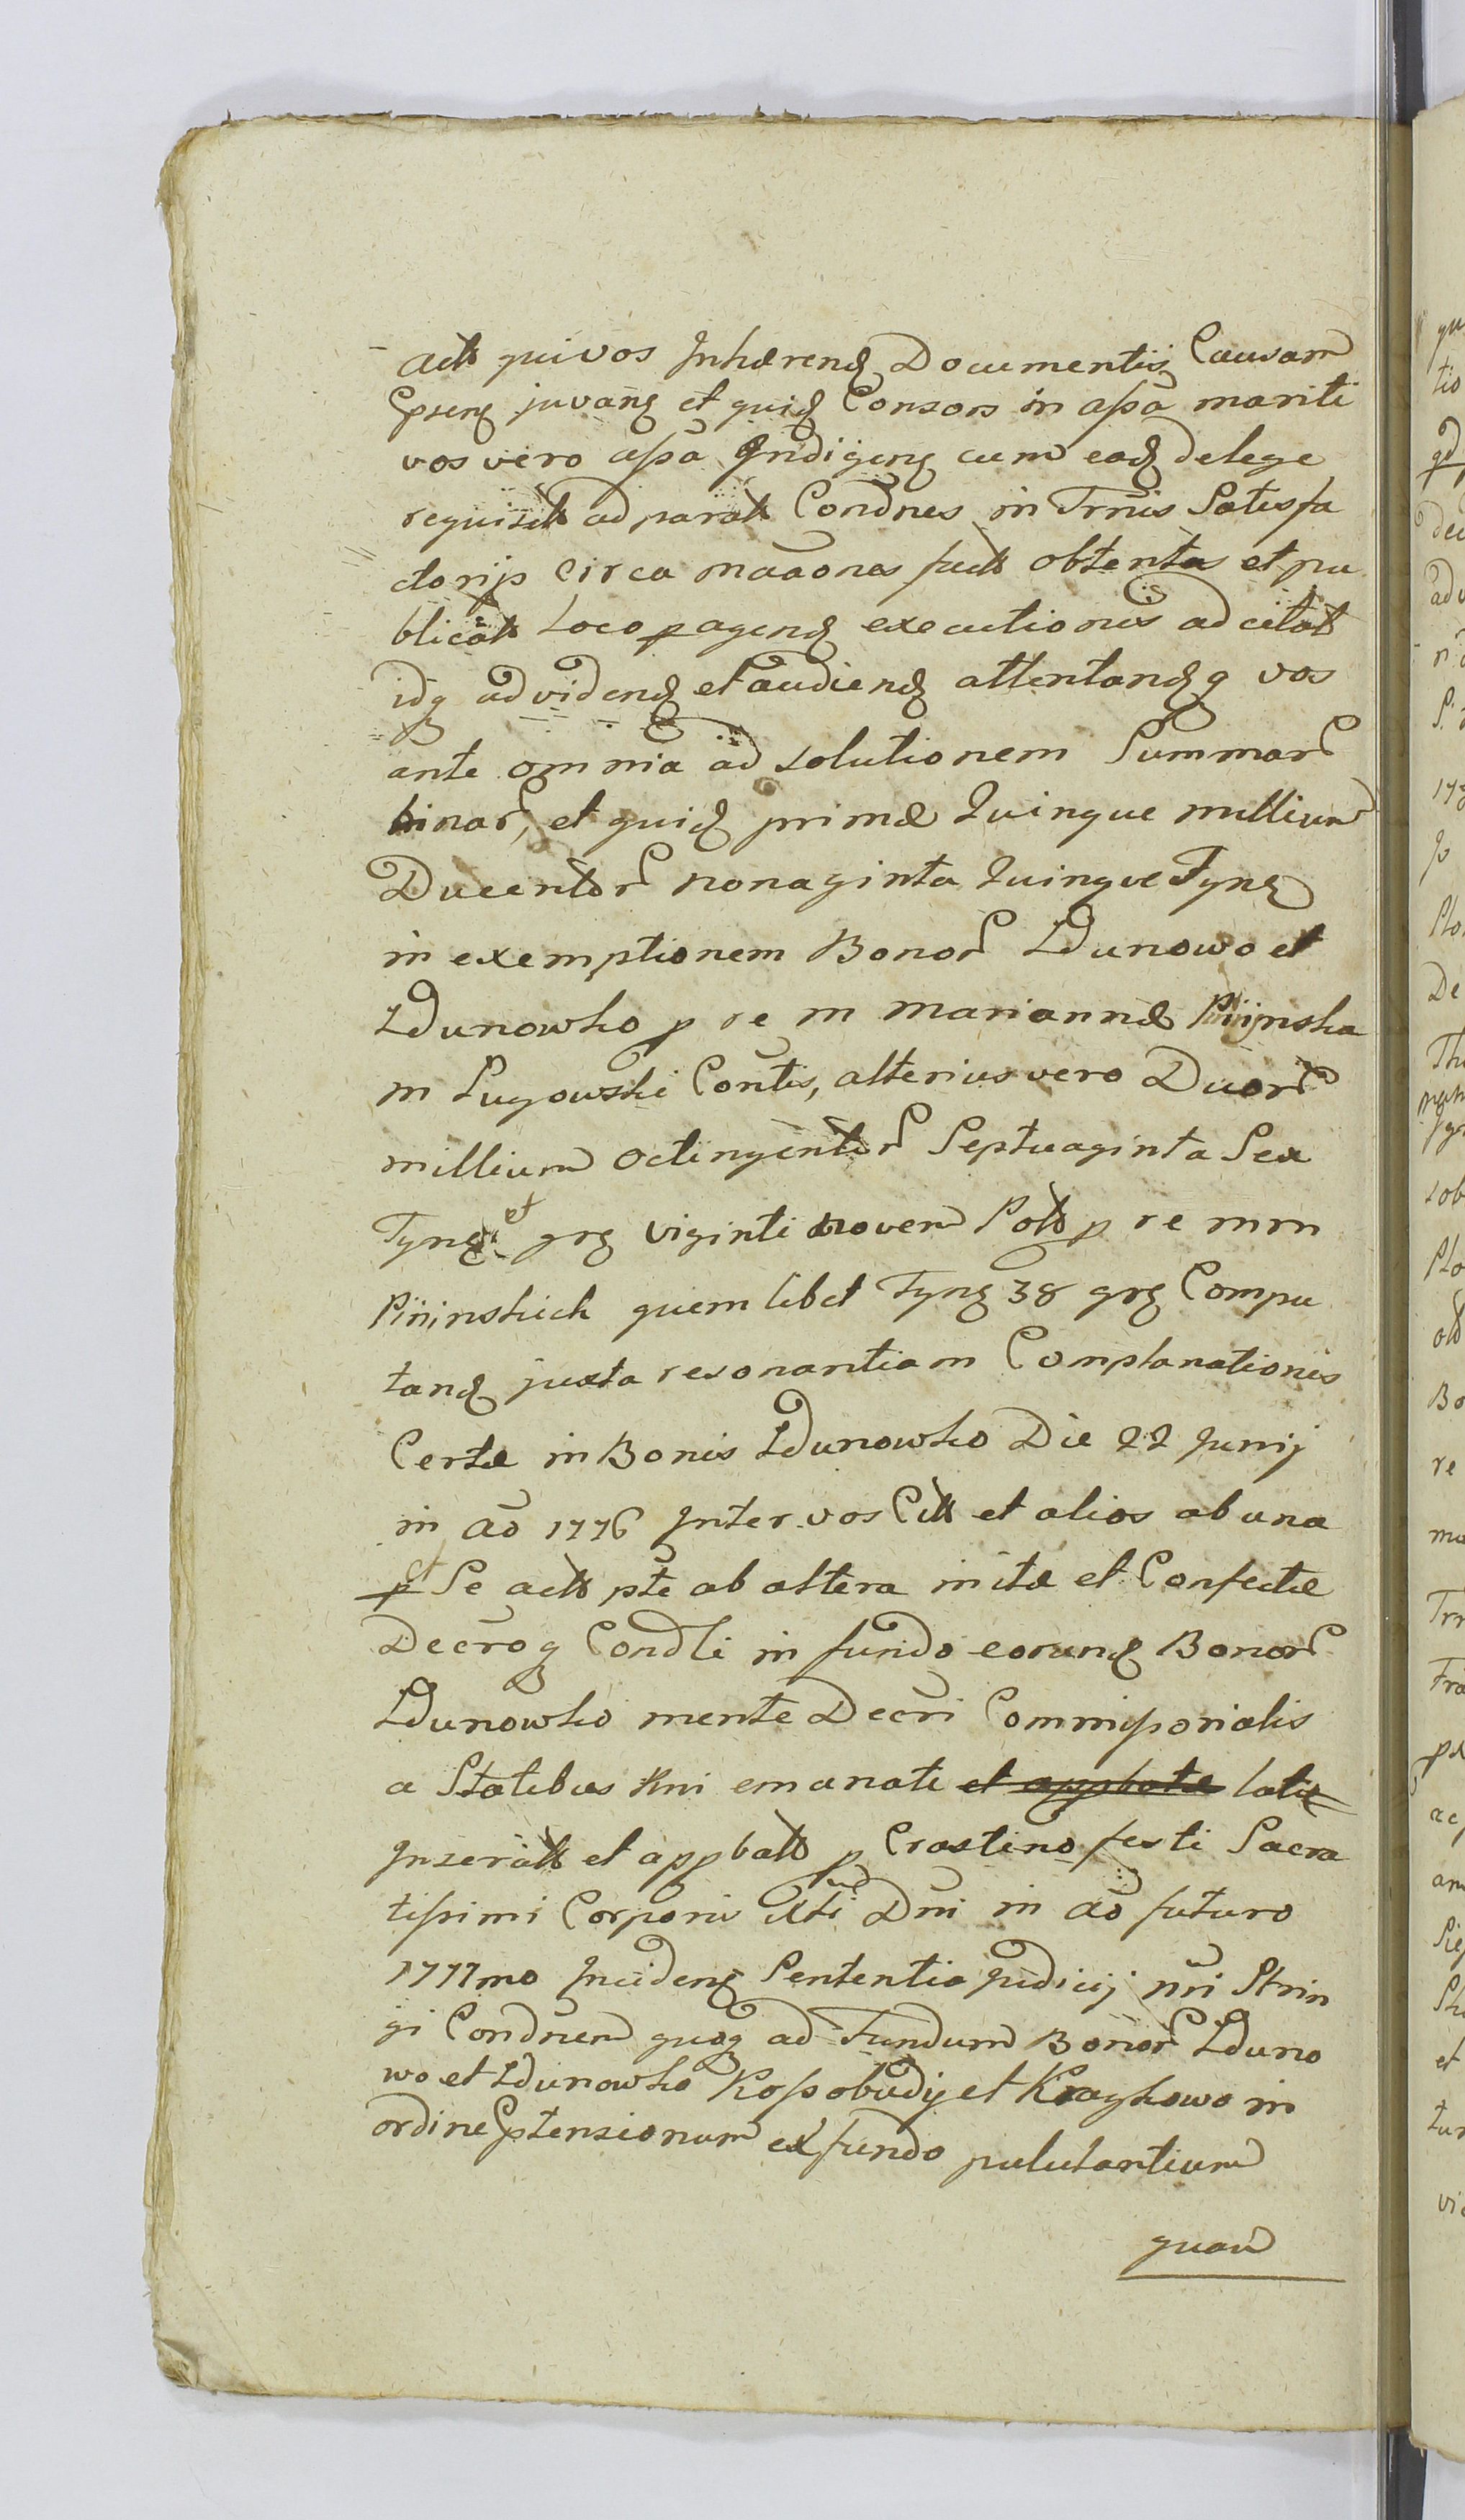 actt qui vos Inhærend Documentis Causam
Pnseng juvang et quid Consors in assa mariti
vos vero assa Indigeng cum ead delege
requisitt ad paratt Condnes in Trnis Satisfa
ctorijs circa maaones factt obtentas et pu
blicatt Loco pagend executionis ad citatt
idq ad videnđ et audiend attentandq vos
ante omnia ad solutionem Summar
binar, et quid primæ Quinque millium
Ducentor nonaginta Quinque Tyng
in exemptionem Bonor Zdunowo et
Zdunowko p re m Mariannæ Pnijnska
m Lugowski Contis, alterius vero Duor
millium octingentor Septuaginta Sex
Tyng et grg viginti novem Poltt p re mm
Pniinskich quemlibet Tyng 38 grg Compu
tand juxta resonantiam Complanationis
Certæ in Bonis Zdunowko Die 22 Junij
in Aō 1776 Inter vos Citt et alios ab una
et Se actt pte ab altera initæ et Confectæ
Decroq Condli in fundo eorund Bonor
Zdunowko mente Decri Commissorialis
a Statibus Rni emanati et appbatæ latæ
Inseratt et appbatt p Crastino festi Sacra
tissimi Corporis Xti Dni in aō futuro
1777mo Incideng Sententia Judicij nri Strin
gi Condnem quoq ad Fundum Bonor Zduno
wo et Zdunowko Kossobudy et Kraykowo in
ordine Ptensionum ex fundo pulutantium
quam